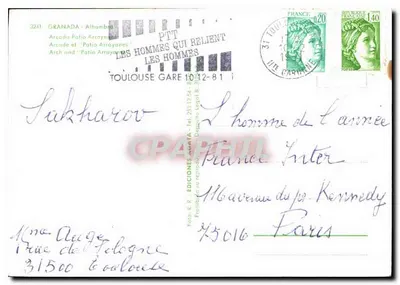 3201 GRANADA - Alhambra
Arcada Patio Arrayanes
Arcade et "Patio Arrayanes"
Arch und "Patio Arrayanes"
PTT
LES HOMMES QUI RELIENT
LES HOMMES
TOULOUSE GARE 10-12-81
FRANCE
0,20
FRANCE
1,40
Sakharov
L'homme de l'année
France Inter
116 avenue du pr. Kennedy
75016 Paris
Mme Augé
rue de Pologne
31500 Toulouse
EDICIONES
CPAPHIL